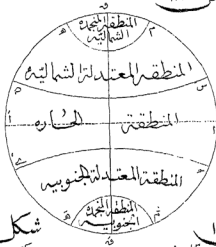 المنطقة المنجمدة
الشمالية
المنطقة المعتدلة الشمالية
المنطقة الحارة
المنطقة المعتدلة الجنوبية
المنطقة المنجمدة
الجنوبية
شكل